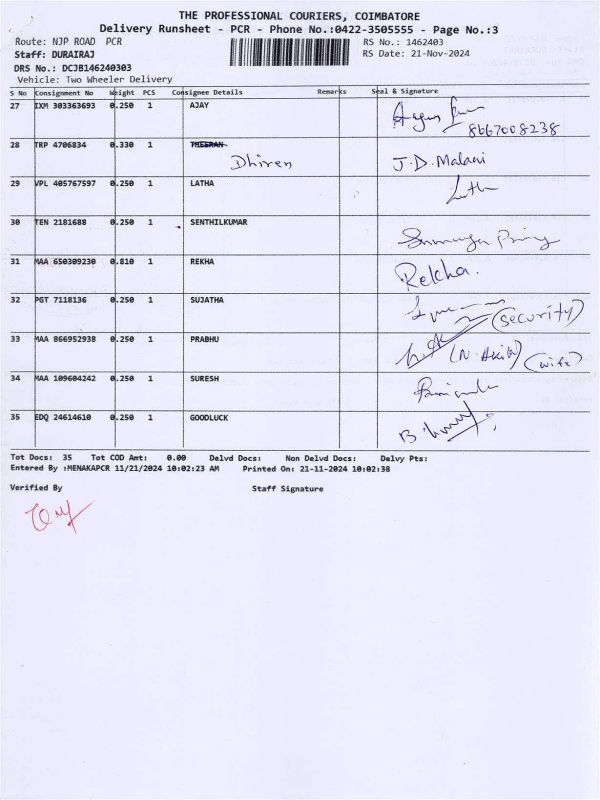 THE PROFESSIONAL COURIERS, COIMBATORE
Delivery Runsheet - PCR - Phone No.:0422-3505555 - Page No.:3
Route: NJP ROAD PCR RS No.: 1462403
Staff: DURAIRAJ RS Date: 21-Nov-2024
DRS No.: DCJB146240303
Vehicle: Two Wheeler Delivery
S No Consignment No Weight PCS Consignee Details Remarks Seal & Signature
27 IXM 303363693 0.250 1 AJAY
8667008238
28 TRP 4706834 0.330 1 THEERAN
Dhiren J.D.Malani
29 VPL 405767597 0.250 1 LATHA Latha
30 TEN 2181688 0.250 1 SENTHILKUMAR
31 MAA 650309230 0.810 1 REKHA Rekha.
32 PGT 7118136 0.250 1 SUJATHA
(Security)
33 MAA 866952938 0.250 1 PRABHU (wife)
34 MAA 109604242 0.250 1 SURESH
35 EDQ 24614610 0.250 1 GOODLUCK
Tot Docs: 35 Tot COD Amt: 0.00 Delvd Docs: Non Delvd Docs: Delvy Pts:
Entered By :MENAKAPCR 11/21/2024 10:02:23 AM Printed On: 21-11-2024 10:02:38
Verified By Staff Signature